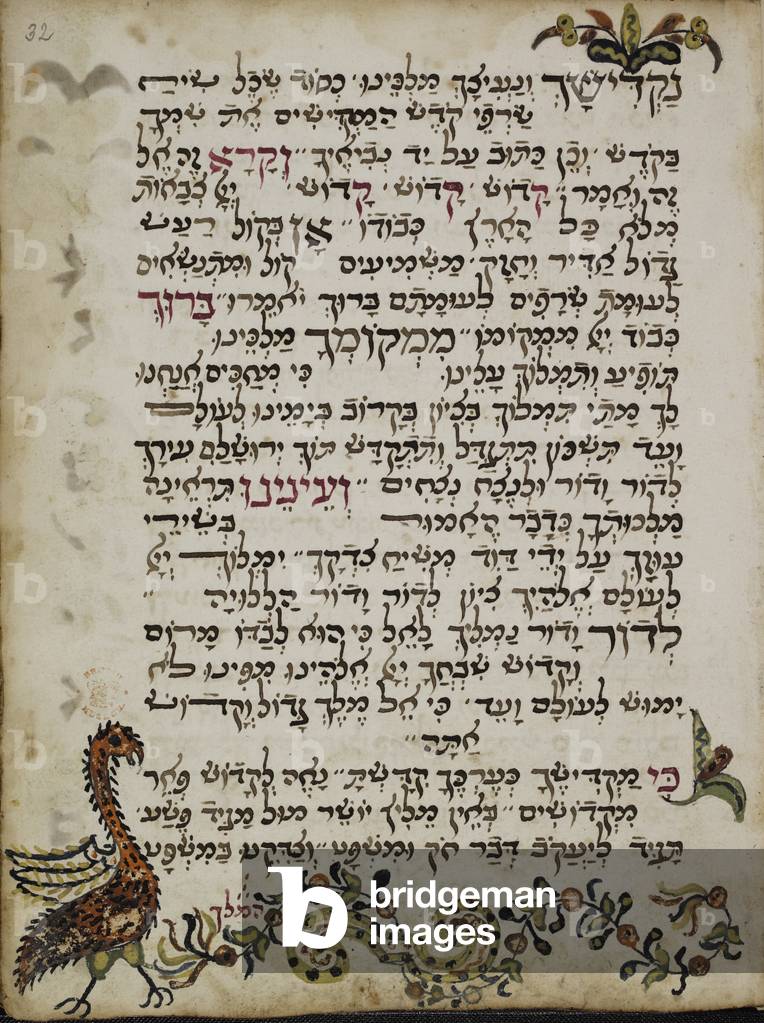 32
נַקְדִּישָׁךְ וְנַעֲרִיצָךְ מַלְכֵּינוּ כְּסוֹד שֶׂכֶל שִׂיחַ
שַׂרְפֵי קֹדֶשׁ הַמַּקְדִּישִׁים אֶת שִׁמְךָ
בַּקֹּדֶשׁ וְכֵן כַּתּוּב עַל יַד נְבִיאֶיךָ וְקָרָא זֶה אֶל
זֶה וְאָמַר קָדוֹשׁ קָדוֹשׁ קָדוֹשׁ יְיָ צְבָאוֹת
מְלֹא כָּל הָאָרֶץ כְּבוֹדוֹ אָז בְּקוֹל רַעַשׁ
גָּדוֹל אַדִּיר וְחָזָק מַשְׁמִיעִים קוֹל וּמִתְנַשְּׂאִים
לְעוּמַּת שְׂרָפִים לְעוּמָּתָם בָּרוּךְ יֹאמֵרוּ בָּרוּךְ
כְּבוֹד יְיָ מִמְּקוֹמוֹ מִמְּקוֹמְךָ מַלְכֵּינוּ
תוֹפִיעַ וְתִמְלוֹךְ עָלֵינוּ כִּי מְחַכִּים אֲנַחְנוּ
לָךְ מָתַי תִּמְלוֹךְ בְּצִיּוֹן בְּקָרוֹב בְּיָמֵינוּ לְעוֹלָם
וָעֶד תִּשְׁכּוֹן תִּתְגַּדַּל וְתִתְקַדַּשׁ תּוֹךְ יְרוּשָׁלַם עִירְךָ
לְדוֹר וָדוֹר וּלְנֶצַח נְצָחִים וְעֵינֵינוּ תִרְאֶינָה
מַלְכוּתֶךָ כְּדָבָר הָאָמוּר בְּשִׁירֵי
עוּזֶּךָ עַל יְדֵי דָּוִד מְשִׁיחַ צִדְקֶךָ יִמְלוֹךְ יְיָ
לְעוֹלָם אֱלֹהַיִךְ צִיּוֹן לְדוֹר וָדוֹר הַלְלוּיָהּ
לְדוֹר וָדוֹר נַמְלִיךְ לָאֵל כִּי הוּא לְבַדּוֹ מָרוֹם
וְקָדוֹשׁ שִׁבְחֲךָ יְיָ אֱלֹהֵינוּ מִפִּינוּ לֹא
יָמוּשׁ לְעוֹלָם וָעֶד כִּי אֵל מֶלֶךְ גָּדוֹל וְקָדוֹשׁ
אַתָּה
כִּי מַקְדִּישֶׁיךָ כְּעֶרְכְּךָ קִדַּשְׁתָּ נָאֶה לְקָדוֹשׁ פְּאֵר
מִקְּדוֹשִׁים בְּאֵין מֵלִיץ יוֹשֶׁר מוּל מַגִּיד פֶּשַׁע
תַּגִּיד לְיַעֲקֹב דְּבַר חֹק וּמִשְׁפָּט וְצַדְּקֵנוּ בַּמִּשְׁפָּט
הַמֶּלֶךְ
b bridgeman
images